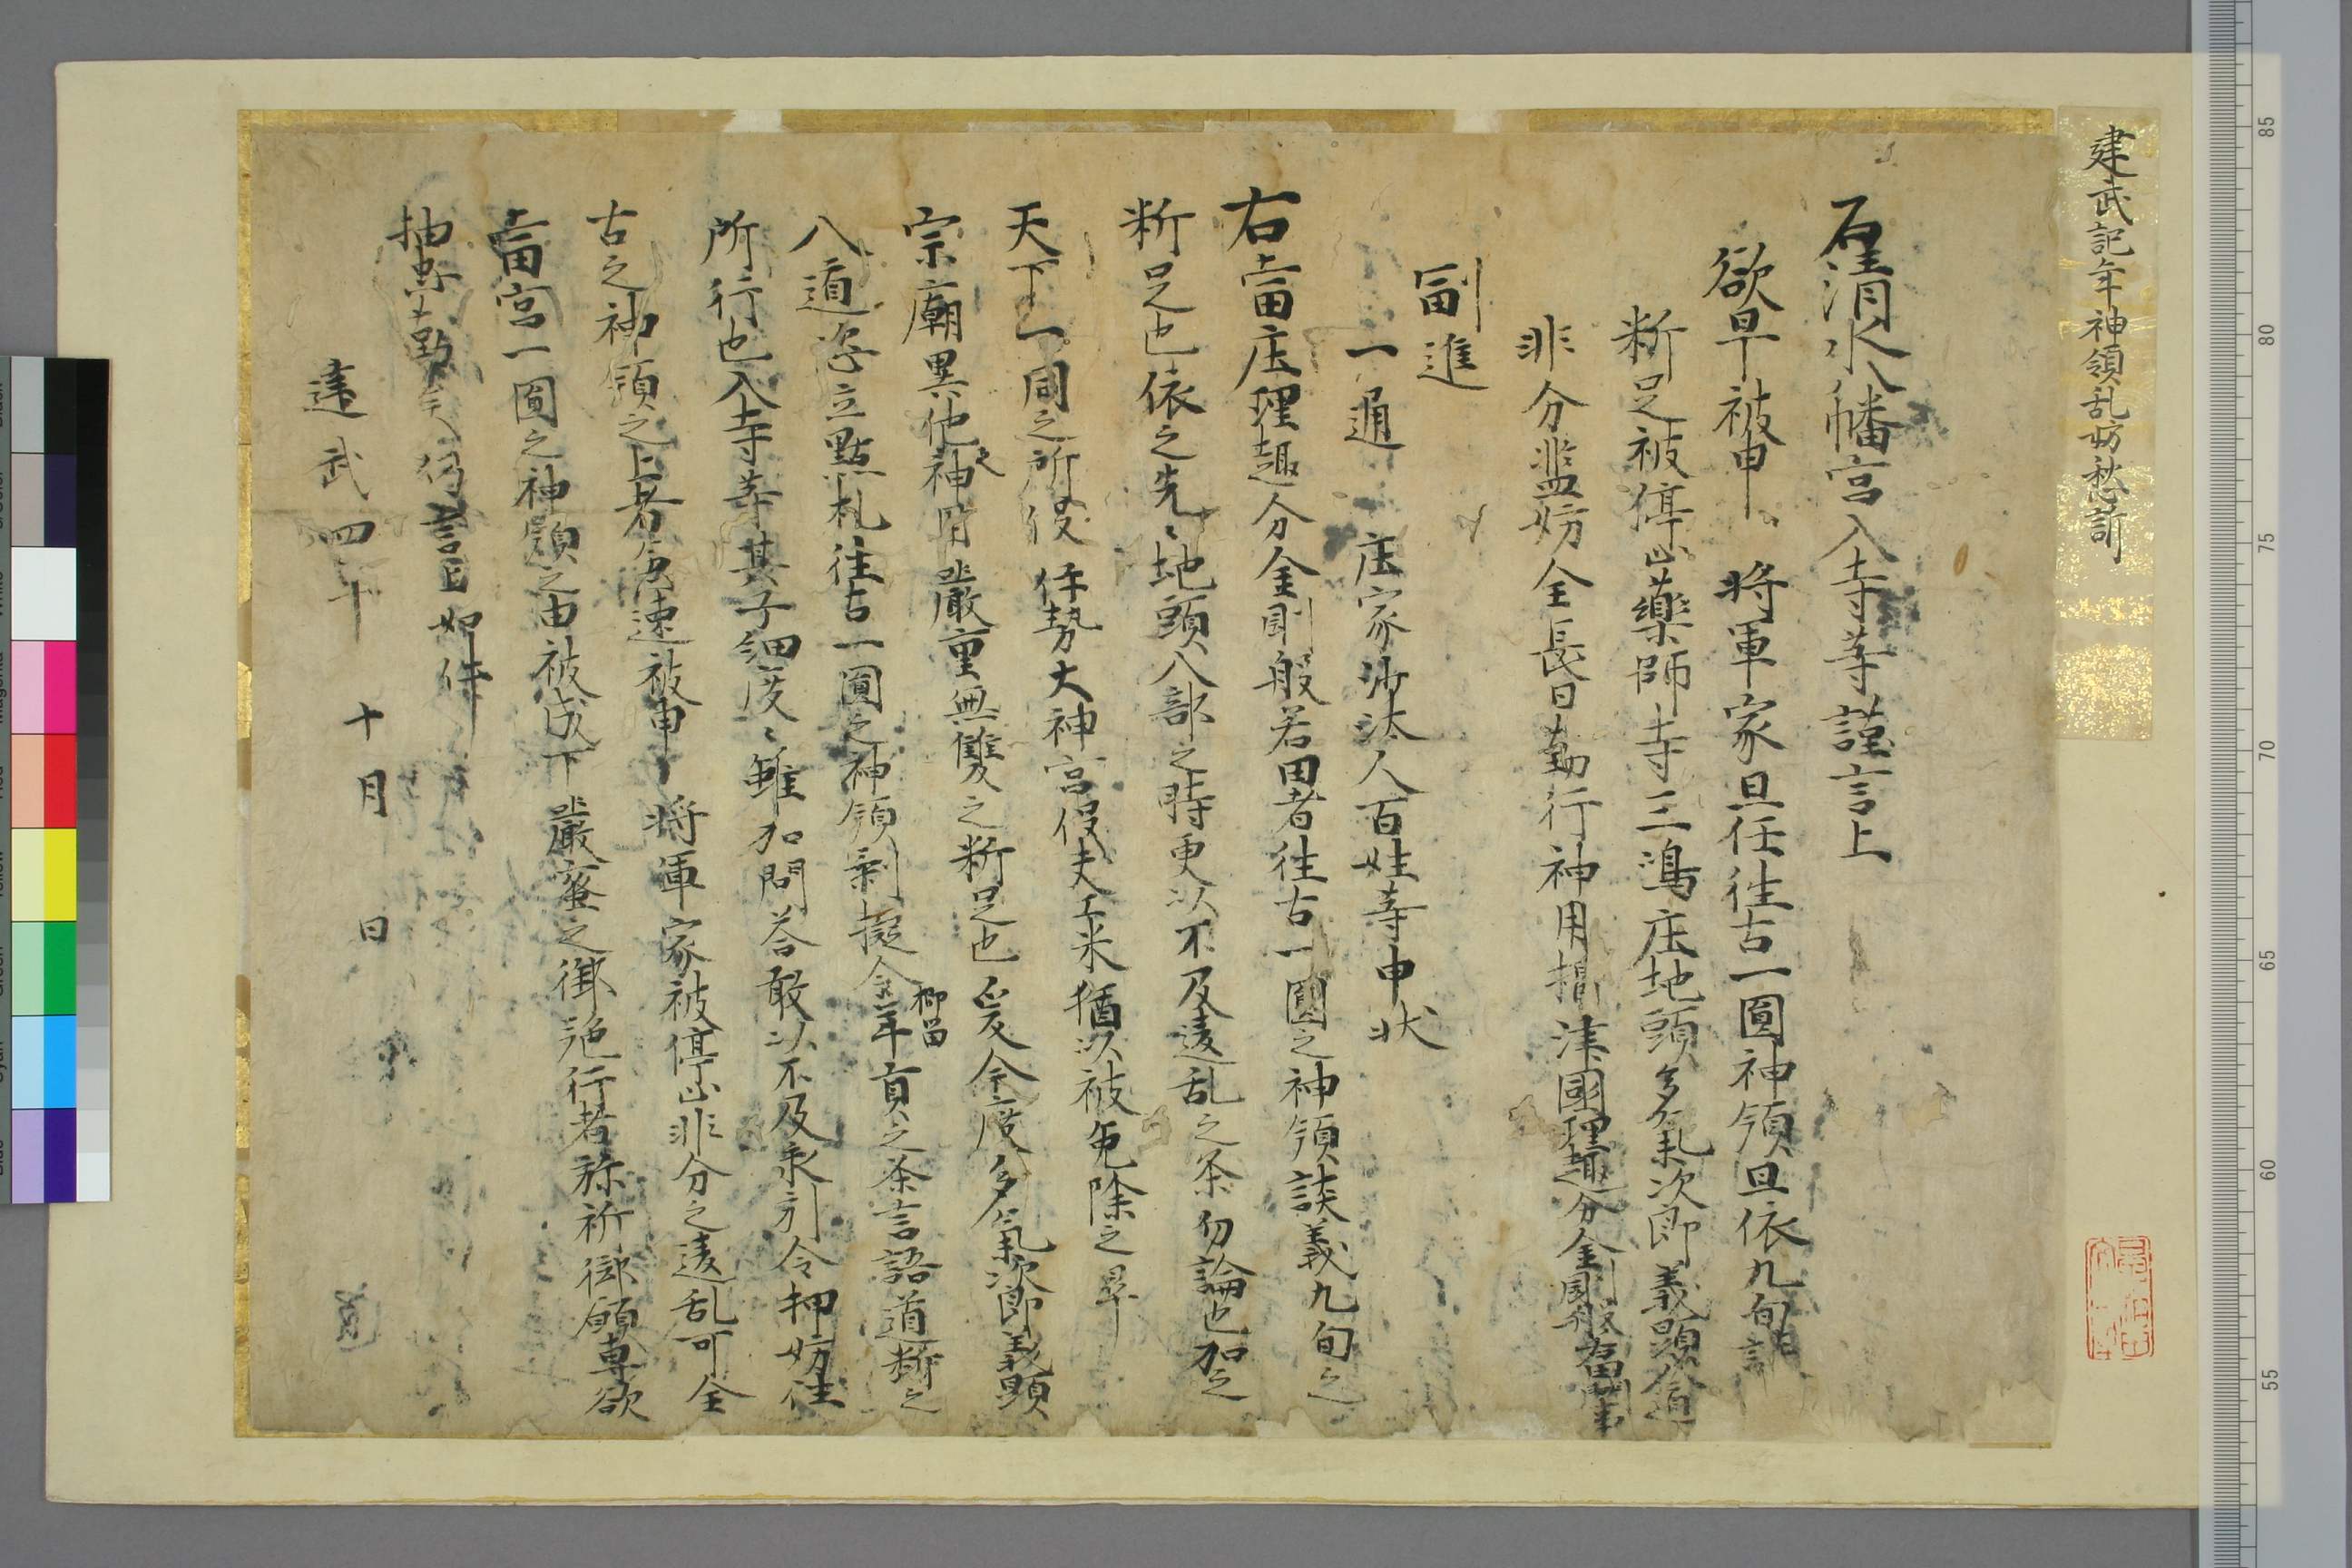 建武記年神領乱妨愁訴
石清水八幡宮入寺等謹言上
欲早被申 将軍家且任往古一圓神領且依九旬談
断足被停止藥師寺三鴻庄地頭多氣次郎義顕入道
非分濫妨全長日勤行神用摂津國理趣分金剛般若田事
副進
一通 庄家沙汰人百姓等申状
右當庄理趣分金剛般若田者往古一圓之神領談義九旬之
断足也依之先〻地頭八部之時更以不及違乱之条勿論也加之
天下一同之所役伊勢大神宮役夫工米猶以被免除之是
宗廟異他之神用嚴重無雙之断足也爰今度多氣次郎義顕
入道恣立點札往古一圓之神領剰擬令抑留年貢之条言語道断之
所行也入寺等其子細度〻雖加問答敢以不及承引令押妨往
古之神領之上者急速被申 将軍家被停止非分之違乱可全
當宮一圓之神領之由被成下嚴蜜之御施行者弥祈御願専欲
抽忠勤矣仍言上如件
建武四年 十月 日